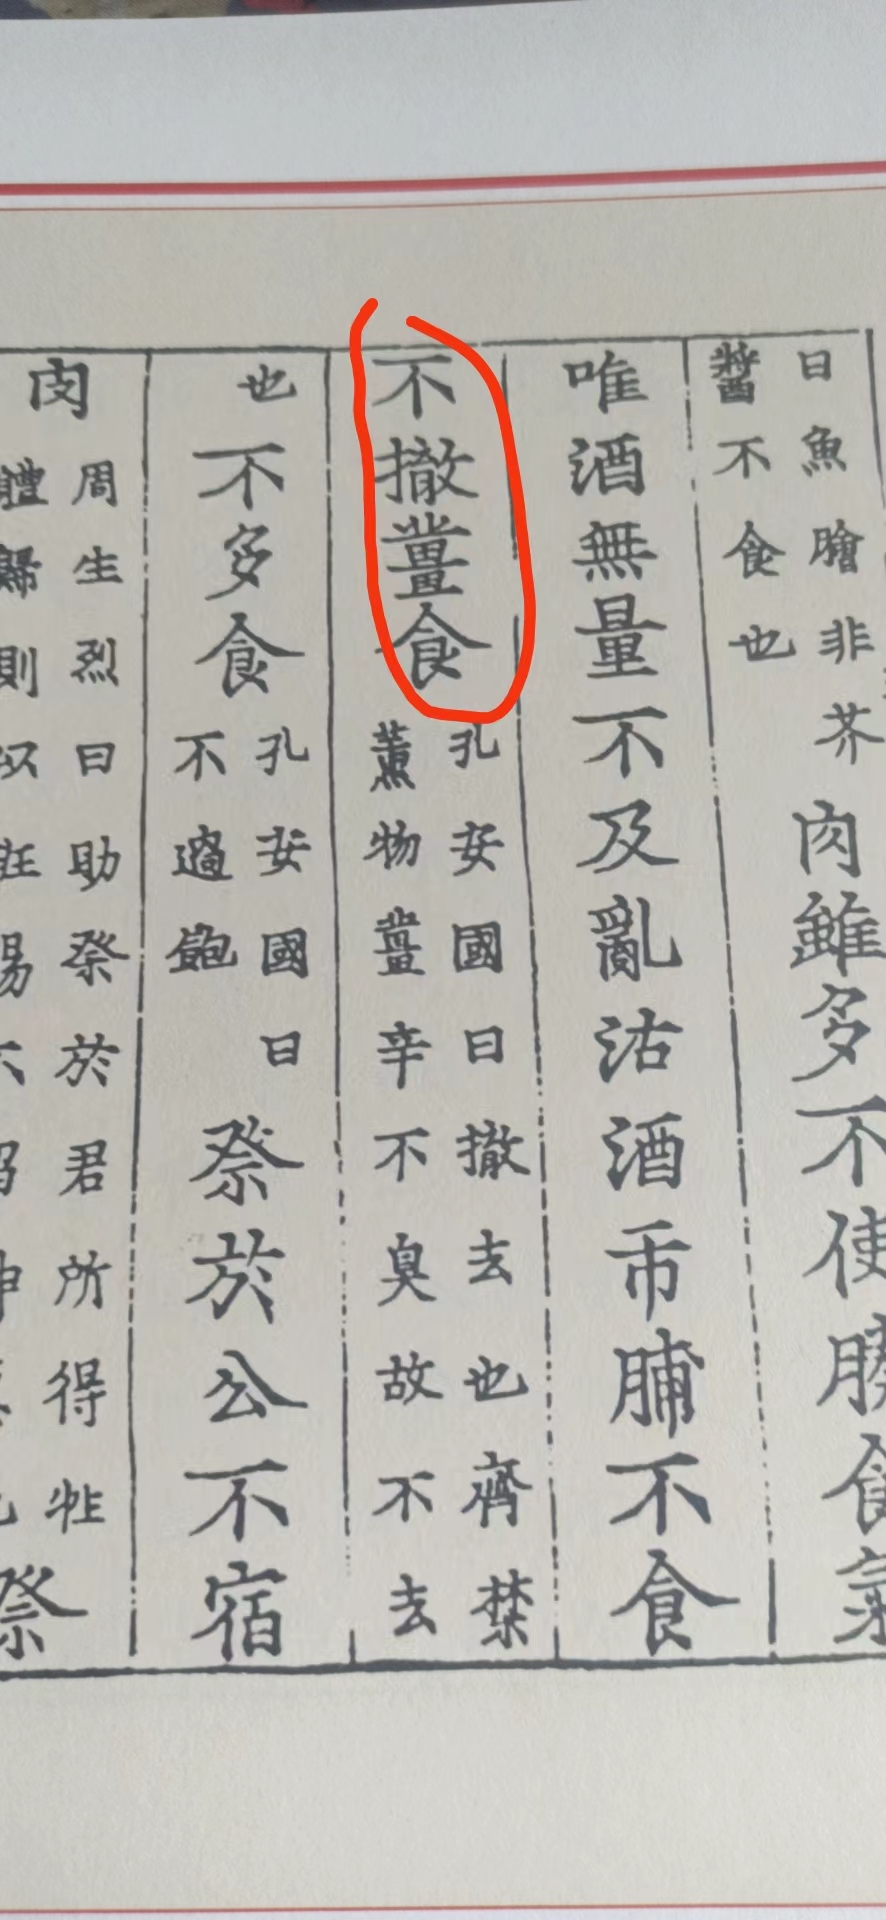 曰魚膾非芥
醬不食也
肉雖多不使勝食氣
唯酒無量不及亂沽酒市脯不食
不撤薑食
孔安國曰撤去也齊禁
薰物薑辛不臭故不去
也不多食
孔安國曰
不過飽
祭於公不宿
肉
周生烈曰助祭於君所得牲
體歸則以
祭